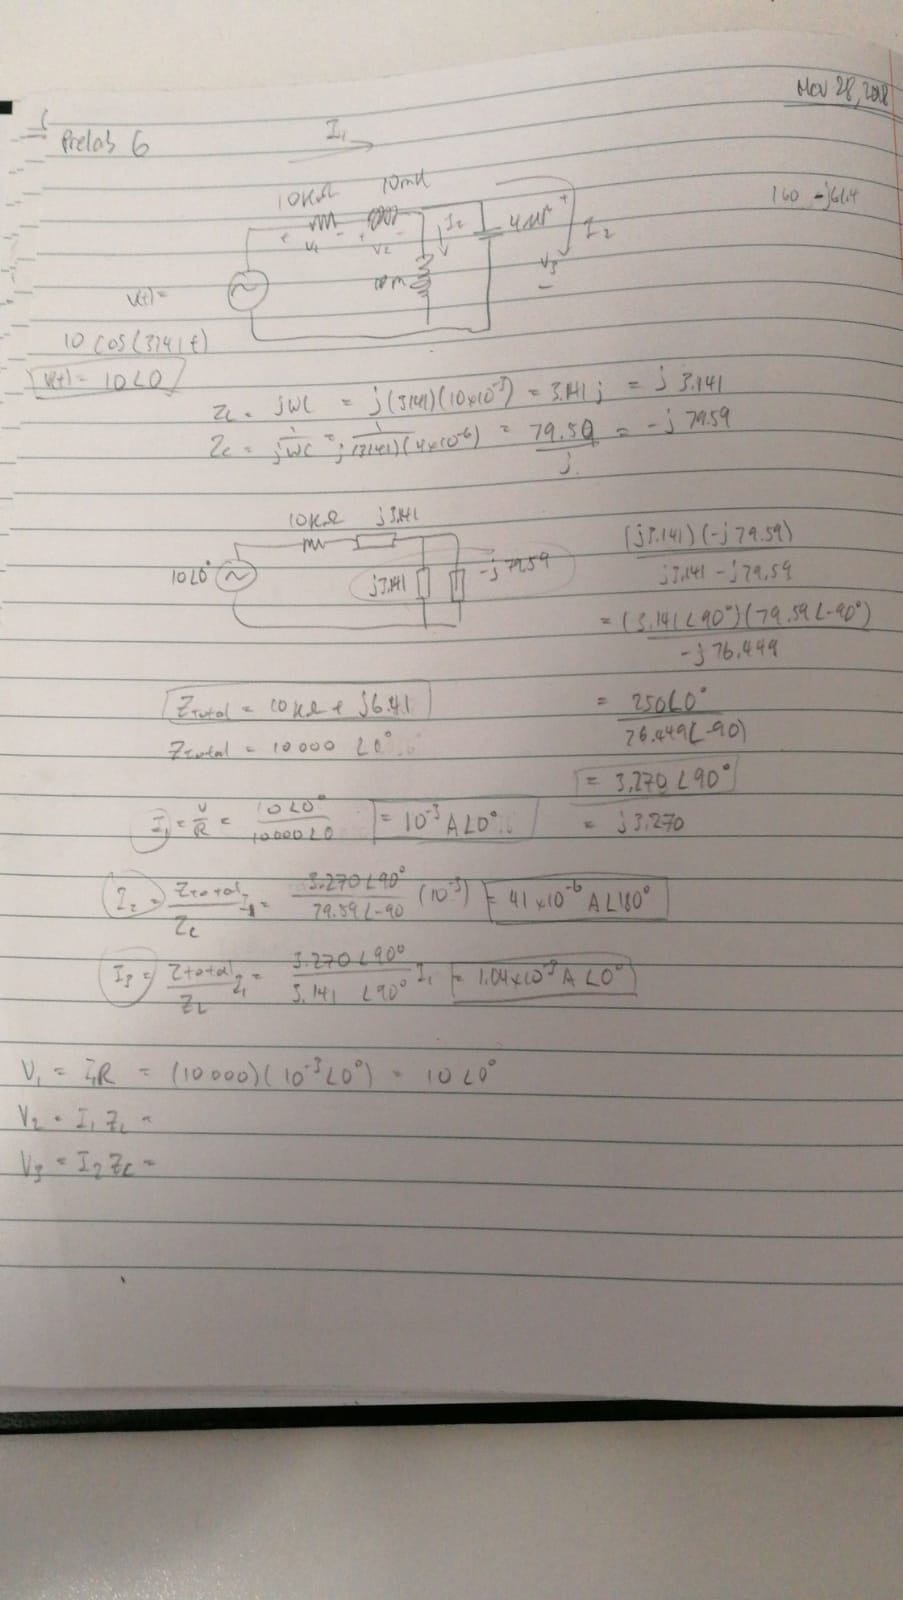 Nov 28, 2018
Prelab 6
I₁
10KΩ 10mH
160 -j61.4
+ V₁ - + V₂ - I₂ 4µF + I₂
V₃
-
10m
V(t) =
10 cos(3141t)
V(t) = 10∠0
Z_L = jWL = j(3141)(10x10⁻³) = 3.141j = j3.141
Z_C = 1/jWC = 1/j(3141)(4x10⁻⁶) = 79.59/j = -j79.59
10KΩ j3.141
10∠0° j3.141 -j79.59
(j3.141)(-j79.59) / j3.141 - j79.59
= (3.141∠90°)(79.59∠-90°) / -j76.449
= 250∠0° / 76.449∠-90
= 3.270∠90°
= j3.270
Ztotal = 10KΩ + j6.41
Ztotal = 10000 ∠0°
I₁ = V/R = 10∠0° / 10000∠0 = 10⁻³ A∠0°
I₂ = Ztotal/Z_C I₁ = 3.270∠90° / 79.59∠-90 (10⁻³) = 41x10⁻⁶ A∠180°
I₃ = Ztotal/Z_L I₁ = 3.270∠90° / 3.141∠90° I₁ = 1.04x10⁻³ A∠0°
V₁ = I₁R = (10000)(10⁻³∠0°) = 10∠0°
V₂ = I₁Z_L =
V₃ = I₂Z_C =